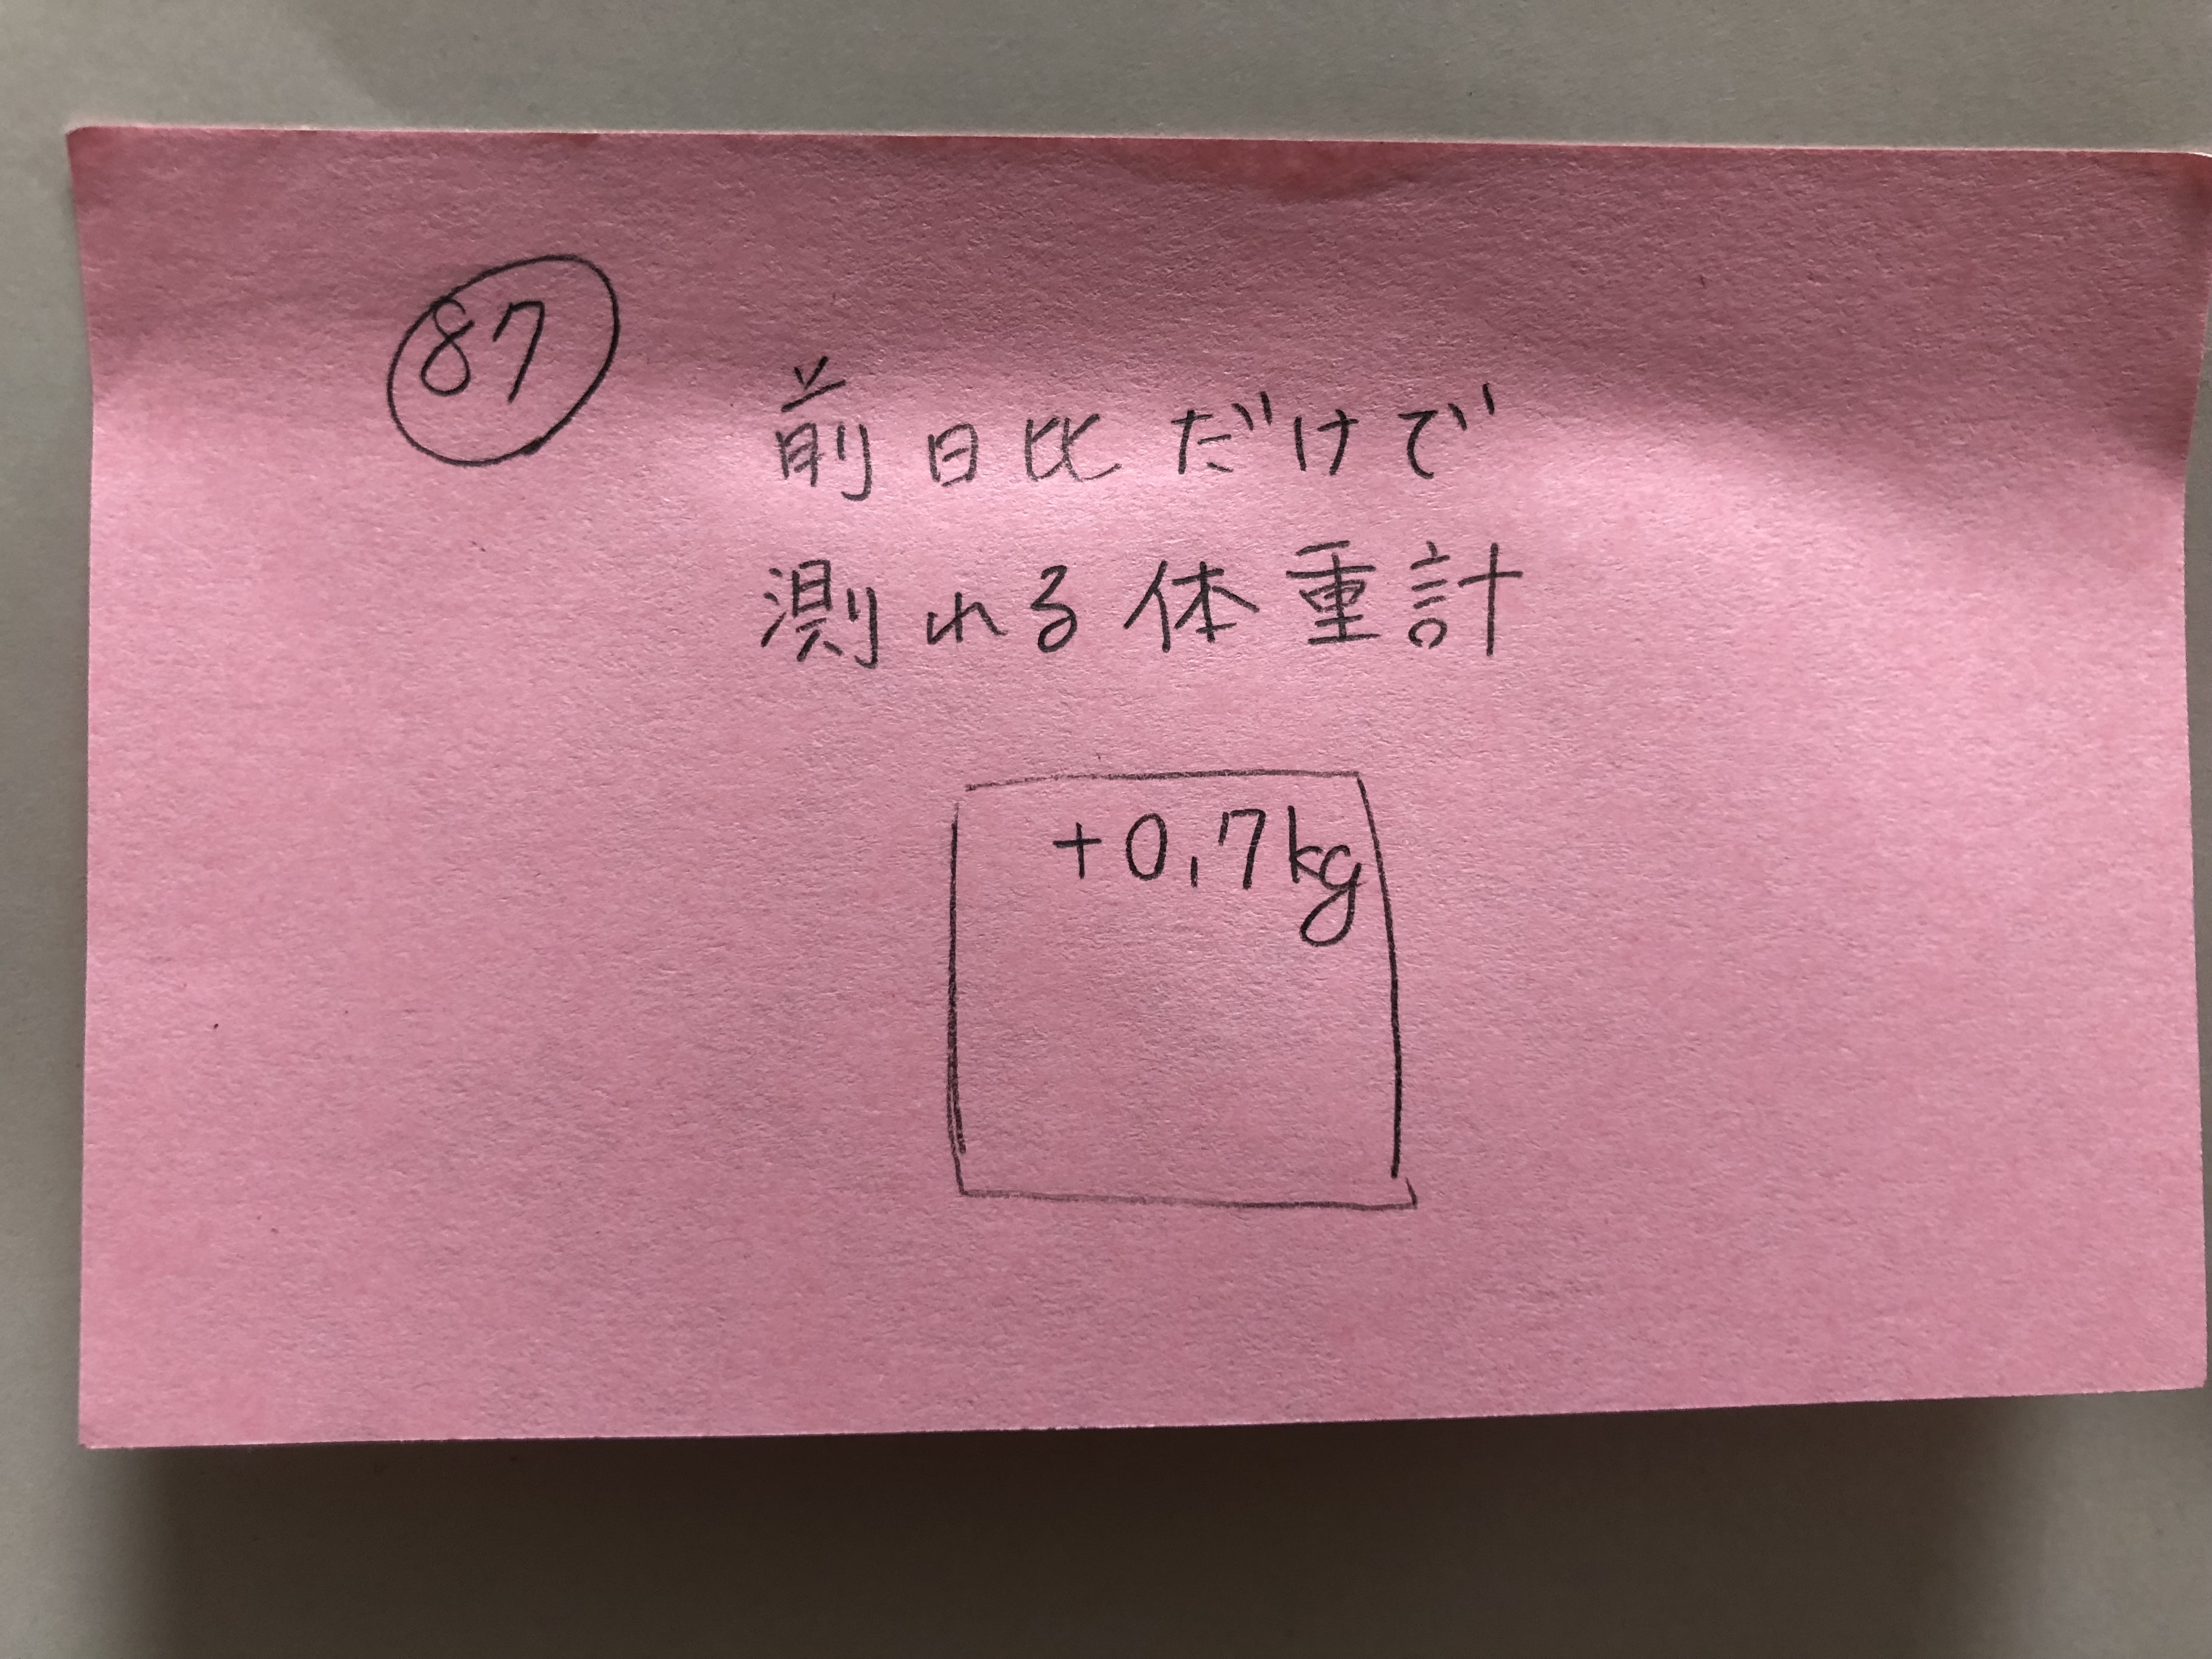 87
前日比だけで
測れる体重計
+0.7kg